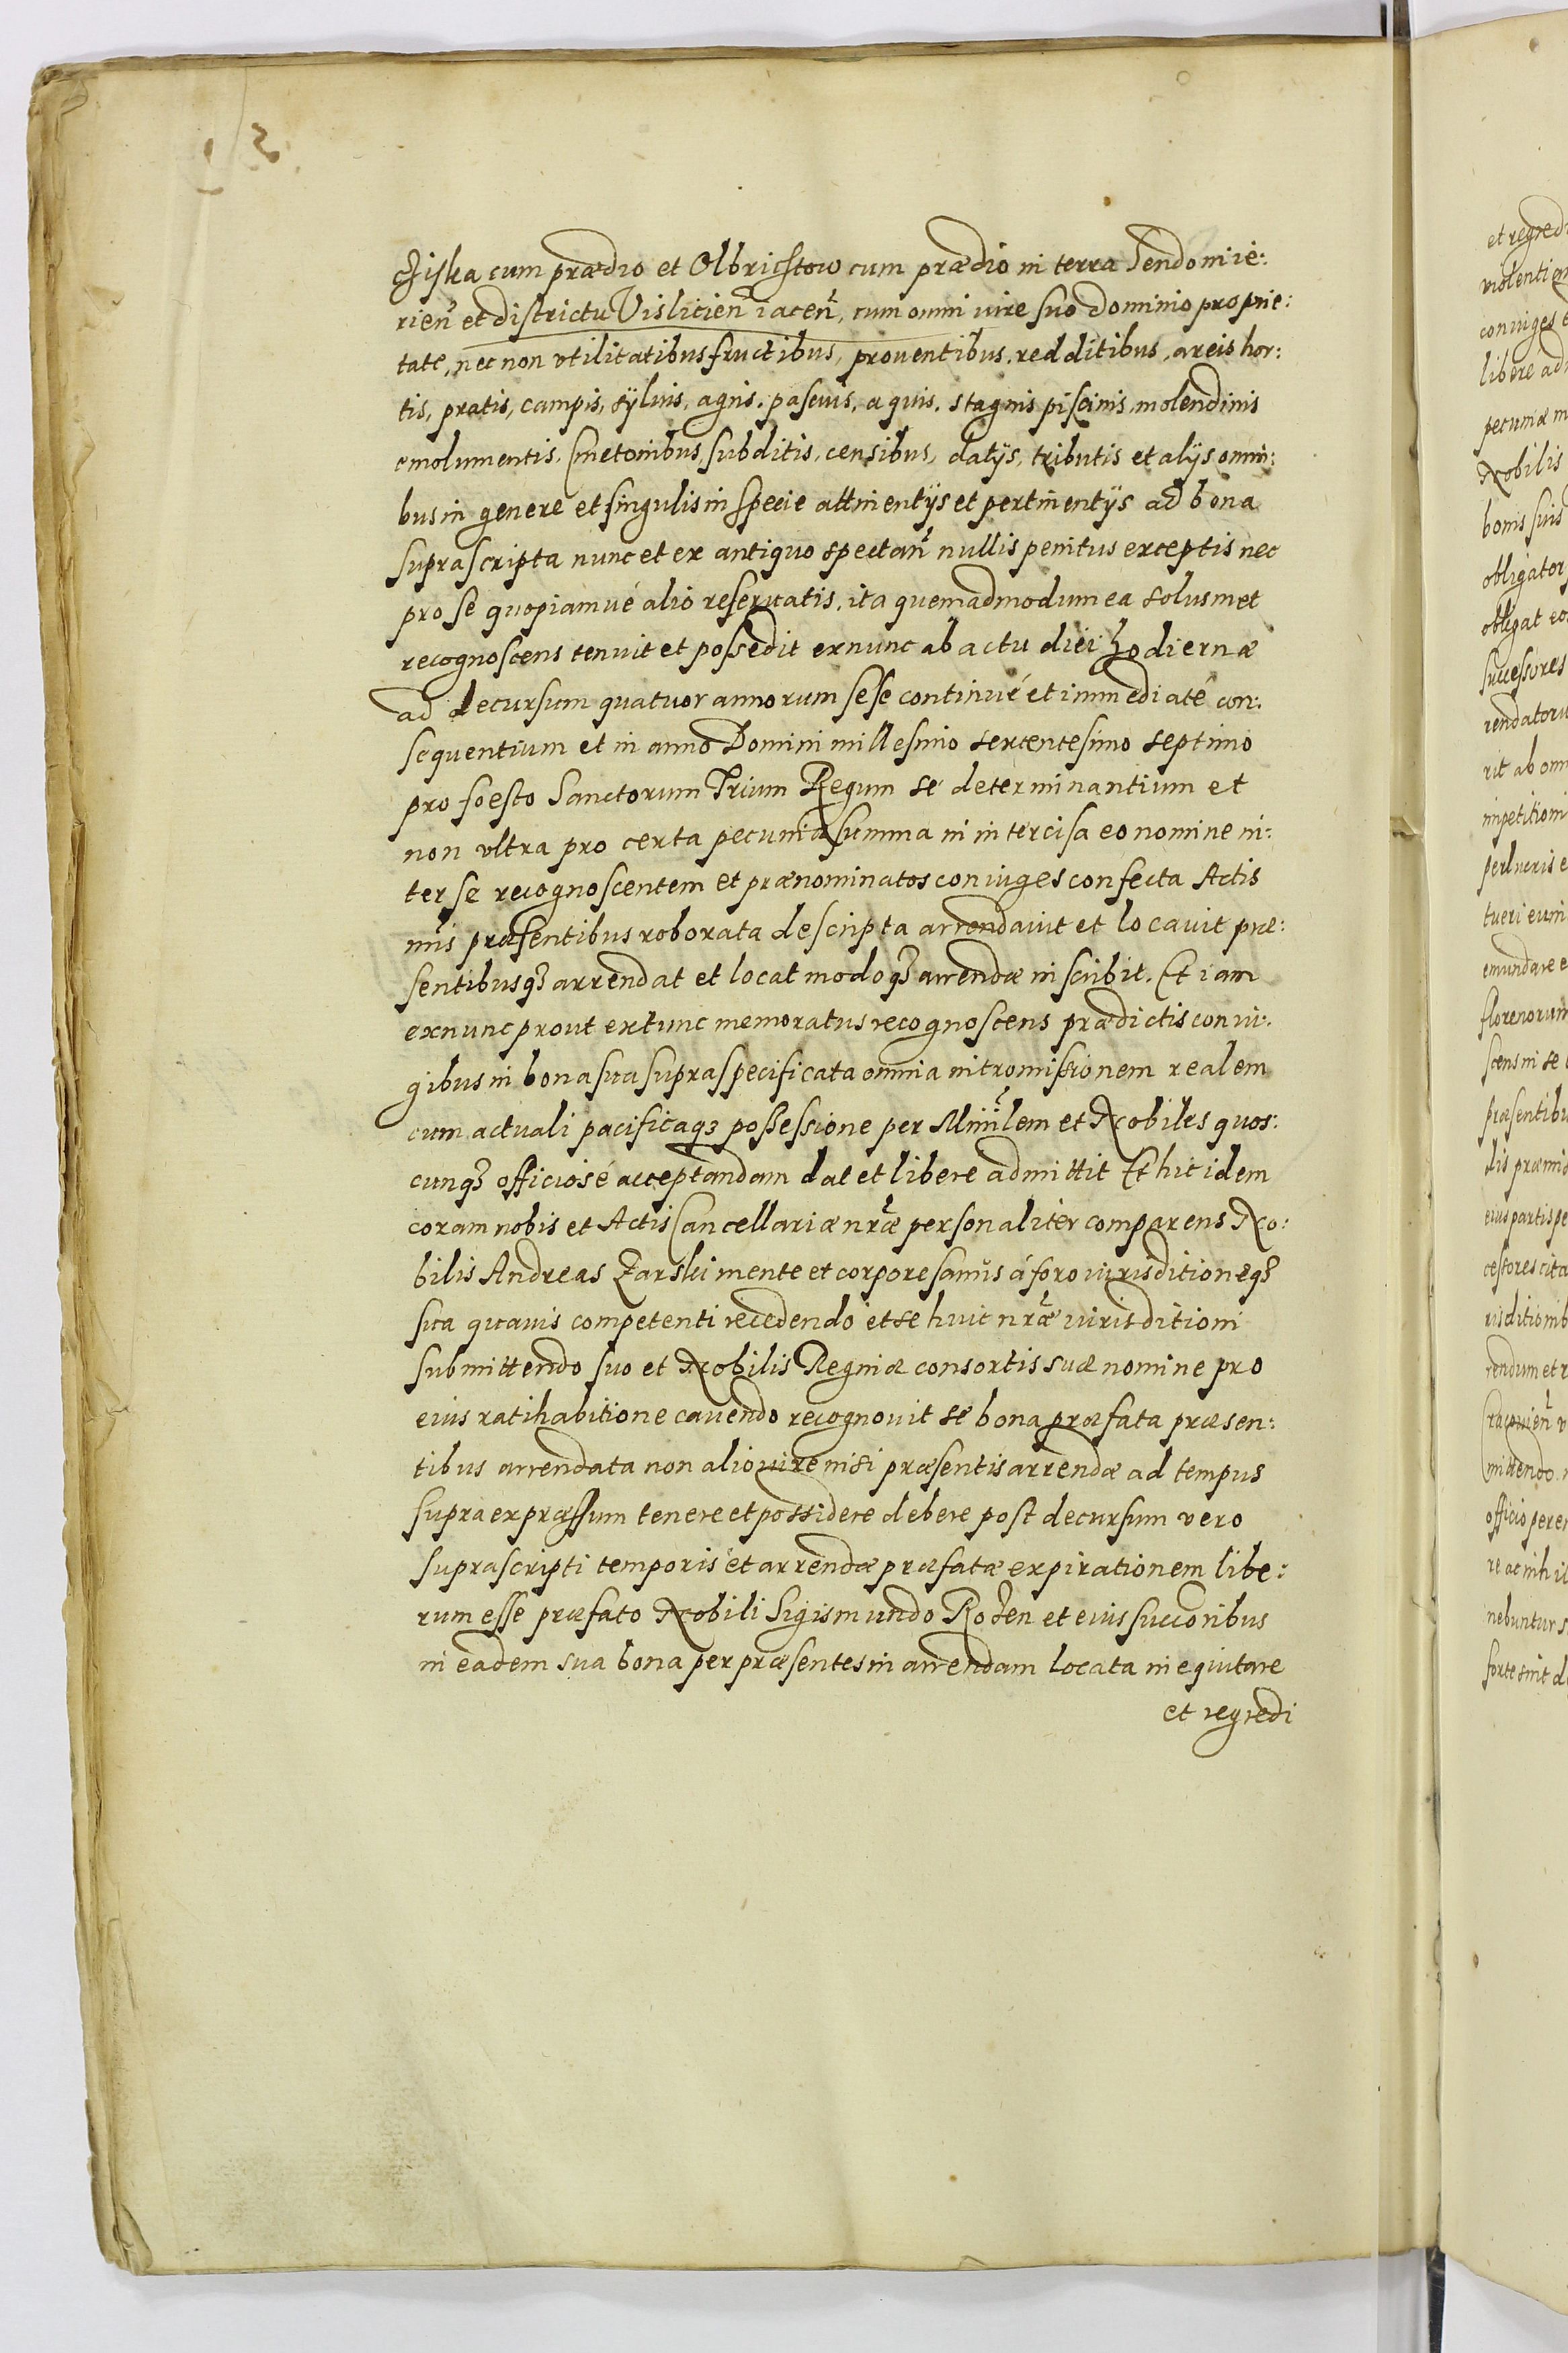 cziska cum prædio et Olbrichtow cum prædio in terra Sendomie:
rien̄ et districtu Visliticien̄ iacen̄, cum omni iure suo Dominio proprie:
tate, nec non vtilitatibus fructibus, prouentibus, redditibus, areis hor:
tis, pratis, campis, sÿluis, agris, pascuis, aquis, stagnis piscinis, molendinis
emolumentis, Cmetonibus, subditis, censibus, datÿs, tributis et alÿs omni:
bus in genere et singulis in specie attinentÿs et pertinentÿs ad bona
suprascripta nunc et ex antiquo spectan̄ nullis penitus exceptis nec
pro se quopiamué alio reseruatis, ita quemadmodum ea solusmet
recognoscens tenuit et possedit exnunc ab actu diei hodiernæ
ad decursum quatuor annorum sese continué et immediaté con:
sequentium et in anno Domini millesimo sexcentesimo septimo
pro foesto Sanctorum Trium Regum se determinantium et
non vltra pro certa pecuniæ summa in intercisa eo nomine in:
ter se recognoscentem et prænominatos coniuges confecta Actis
in̄is præsentibus roborata descripta arrendauit et locauit præ:
sentibusqꝫ arrendat et locat modoqꝫ arrendæ inscribit. Et iam
exnunc prout extunc memoratus recognoscens prædictis coniu:
gibus in bona sua supraspecificata omnia intromissionem realem
cum actuali pacificaqꝫ possessione per Min̄lem et Nobiles quos:
cunqꝫ officiosé acceptandam dat et libere admittit Et hic idem
coram nobis et Actis Cancellariæ nr̄æ personaliter comparens No:
bilis Andreas Zarski mente et corpore sanus á foro iurisditioneqꝫ
sua quauis competenti recedendo et se huic nr̄æ iurisditioni
submittendo suo et Nobilis Reginæ consortis suæ nomine pro
eius ratihabitione cauendo recognouit se bona præfata præsen:
tibus arrendata non alio iure nisi præsentis arrendæ ad tempus
supra expræssum tenere et possidere debere post decursum vero
suprascripti temporis et arrendæ præfatæ expirationem libe:
rum esse præfato Nobili Sigismundo Rożen et eius succoribus
in eadem sua bona per præsentes in arrendam locata inequitare
et regredi